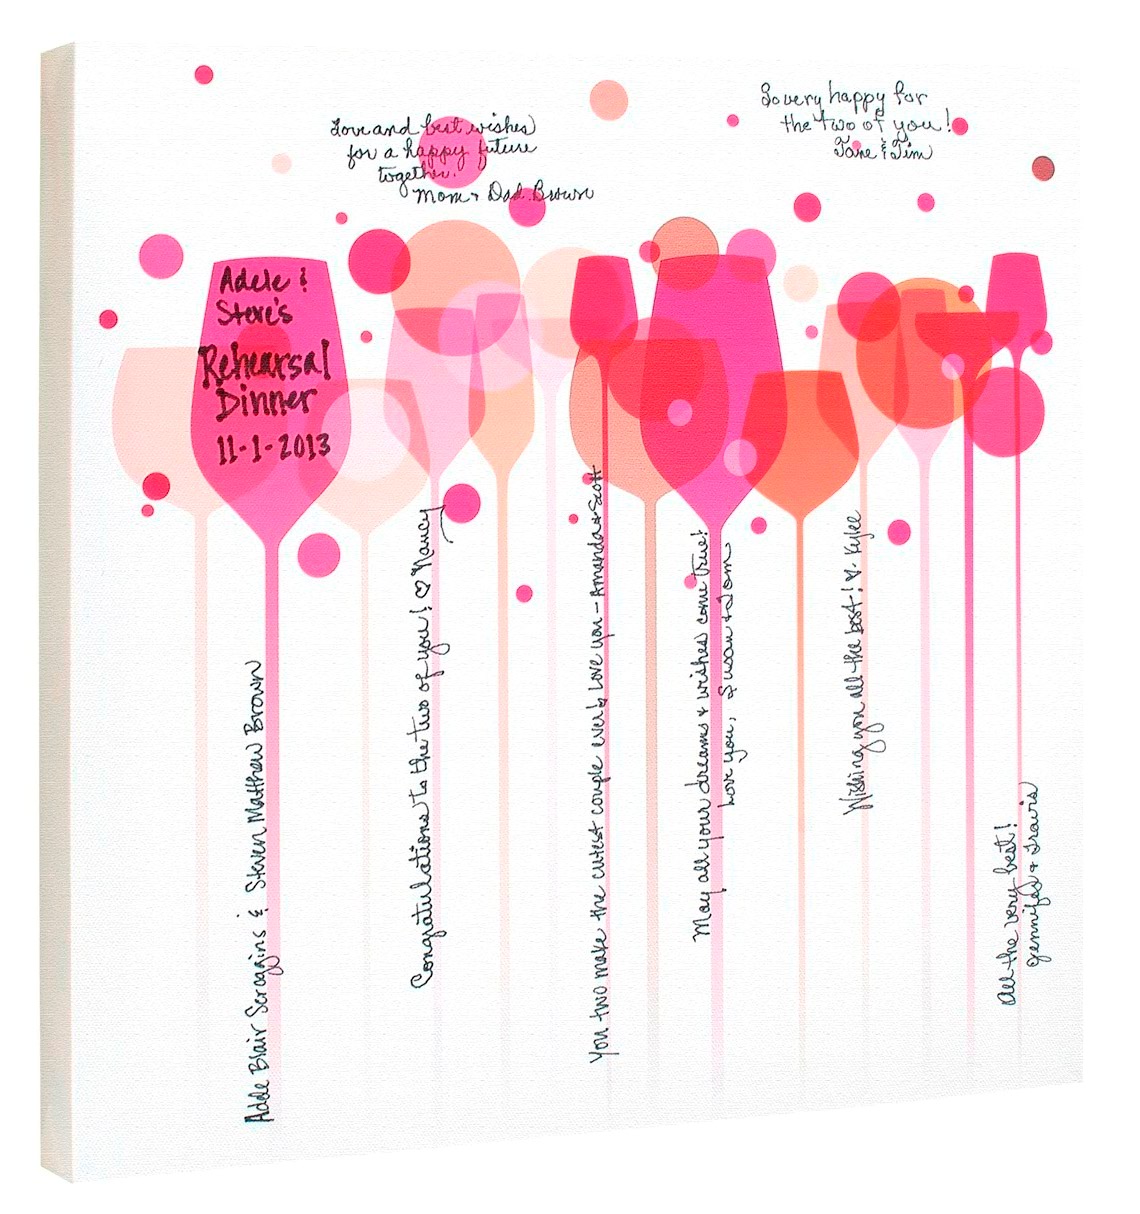 Love and best wishes
for a happy future
together.
Mom + Dad Brown
So very happy for
the two of you!
Jane & Tim
Adele &
Steve's
Rehearsal
Dinner
11-1-2013
Adele Blair Scroggins & Steven Matthew Brown
Congratulations to the two of you! ♡ Nancy
You two make the cutest couple ever! Love you - Amanda & Scott
May all your dreams & wishes come true!
Love you, Susan & Tom
Wishing you all the best! ♡ Kylee
All the very best!
Jennifer & Travis